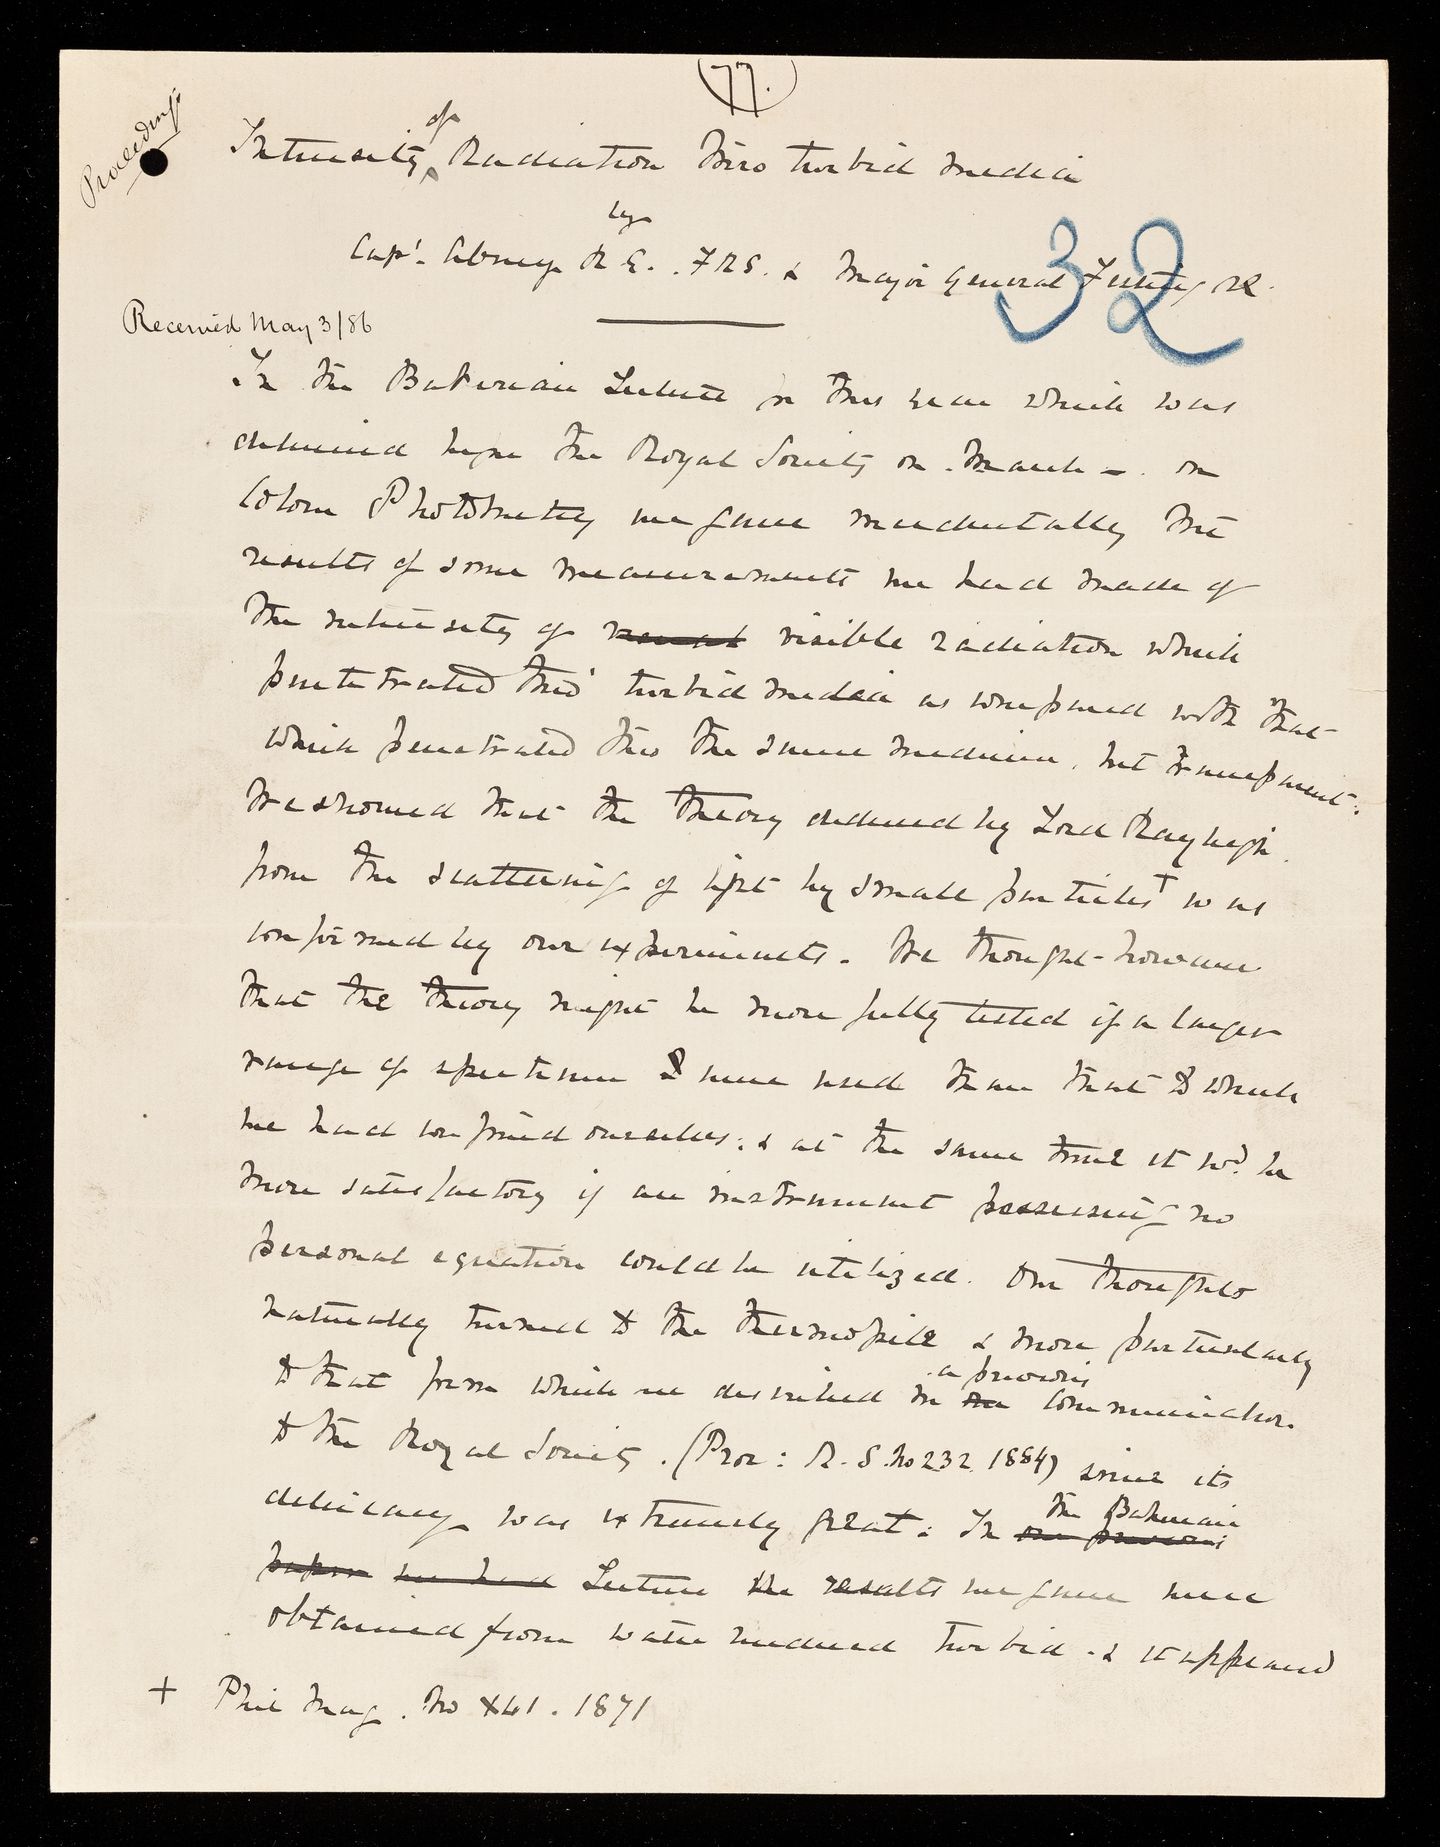 77.
Proceedings
Intensity of Radiation thro turbid media
by
Capt. Abney R.E. F.R.S. & Major General Festing RE.
32
Received May 3/86
In the Bakerian Lecture for this year which was
delivered before the Royal Society on March –. on
Colour Photometry we gave incidentally the
results of some measurements we had made of
the intensity of visible radiation which
penetrated thro' turbid media as compared with that
which penetrated thro the same medium, but transparent.
We showed that the theory deduced by Lord Rayleigh
from the scattering of light by small particles† was
confirmed by our experiments. We thought however
that the theory might be more fully tested if a larger
range of spectrum were used than that to which
we had confined ourselves; & at the same time it wd. be
more satisfactory if an instrument possessing no
personal equation could be utilized. Our thoughts
naturally turned to the thermopile & more particularly
to that form which we described in a previous communication
to the Royal Society. (Proc: R. S. No 232. 1884) since its
delicacy was extremely great. In the Bakerian
paper we had Lecture the results we gave were
obtained from water rendered turbid & it appeared
+ Phil Mag. No X41. 1871